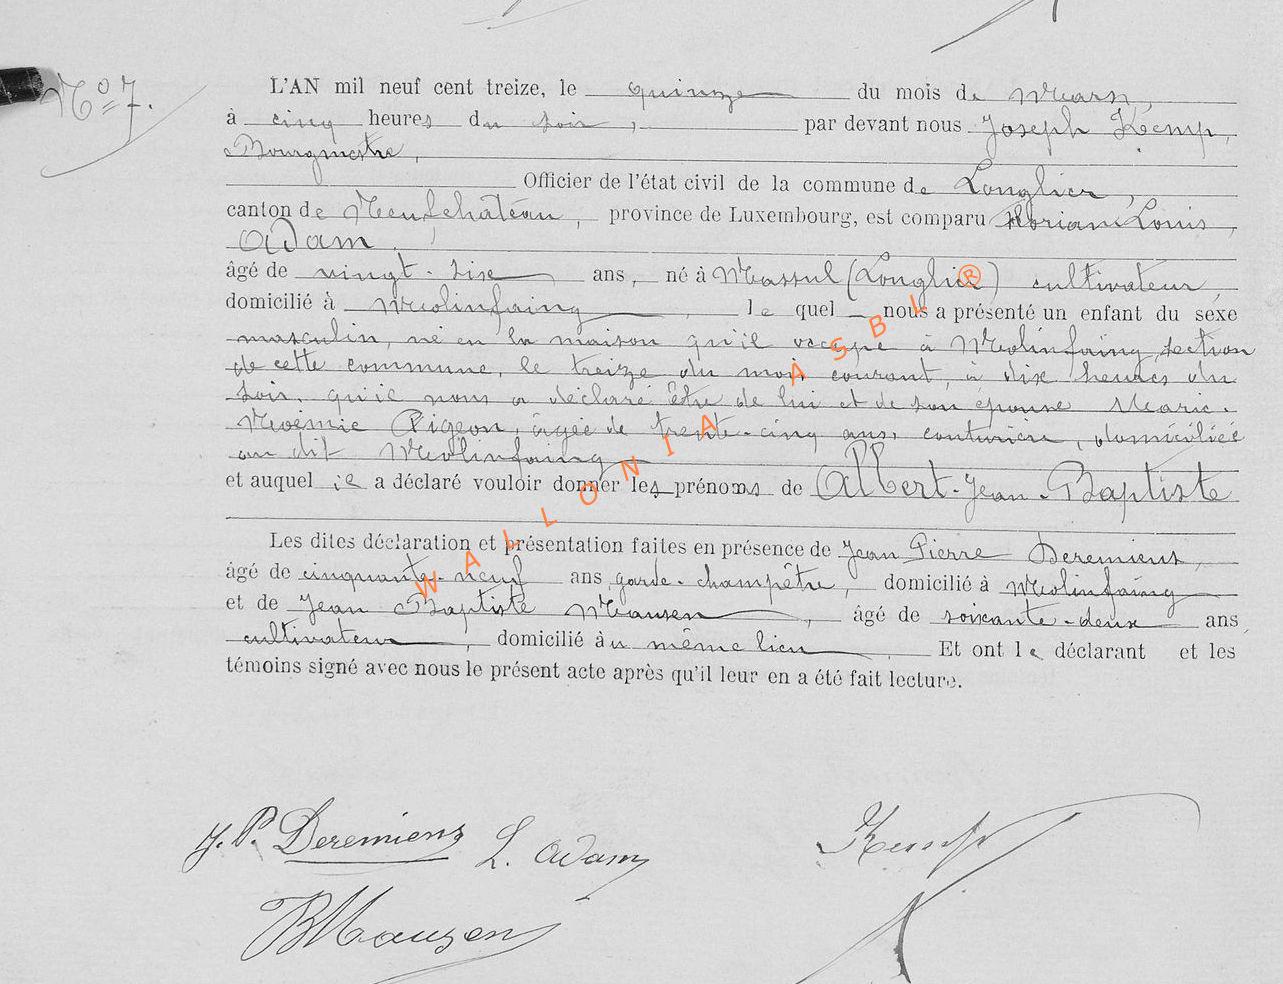 Nº 7.
L'AN mil neuf cent treize, le quinze du mois de Mars,
à cinq heures du soir, par devant nous Joseph Kemp,
Bourgmestre,
Officier de l'état civil de la commune de Longlier,
canton de Neufchâteau, province de Luxembourg, est comparu Florian Louis
Adam,
âgé de vingt-six ans, né à Massul (Longlier) cultivateur,
domicilié à Molinfaing, lequel nous a présenté un enfant du sexe
masculin, né en la maison qu'il occupe à Molinfaing, section
de cette commune, le treize du mois courant, à dix heures du
soir, qu'il nous a déclaré être de lui et de son épouse Marie-
Noémie Pigeon, âgée de trente-cinq ans, couturière, domiciliée
au dit Molinfaing
et auquel il a déclaré vouloir donner les prénoms de Albert-Jean-Baptiste
Les dites déclaration et présentation faites en présence de Jean Pierre Deremiens,
âgé de cinquante-neuf ans, garde-champêtre, domicilié à Molinfaing
et de Jean Baptiste Mausen, âgé de soixante-deux ans,
cultivateur, domicilié au même lieu, Et ont le déclarant et les
témoins signé avec nous le présent acte après qu'il leur en a été fait lecture.
J. P. Deremiens L. Adam Kemp
JB Mauzen
WALLONIA ASBL ®